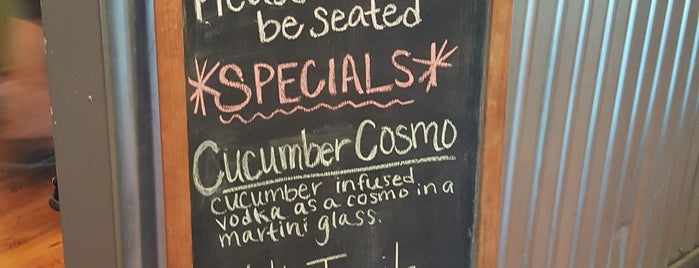 Please
be seated
*SPECIALS*
Cucumber Cosmo
cucumber infused
vodka as a cosmo in a
martini glass.